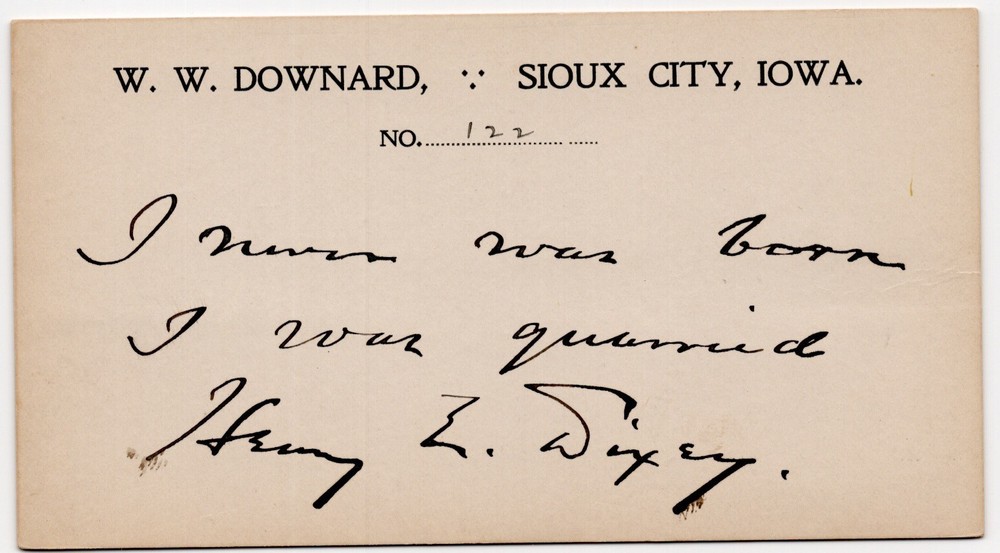 W. W. DOWNARD, ∵ SIOUX CITY, IOWA.
NO. 122
I never was born
I was quarried
Henry E. Dixey.